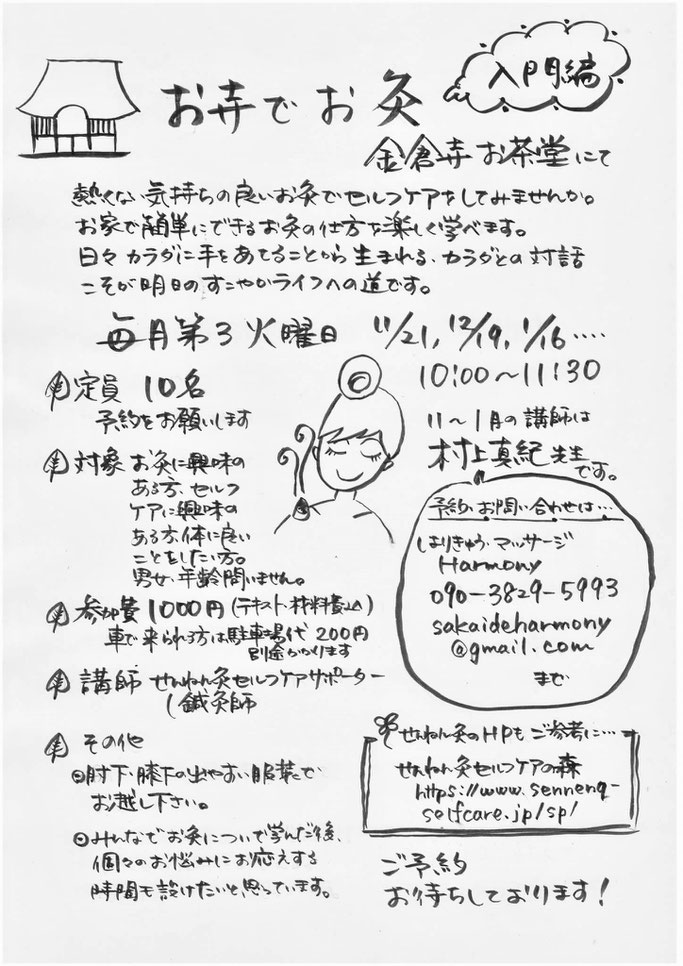 入門編
お寺でお灸
金倉寺お茶堂にて
熱くない気持ちの良いお灸でセルフケアをしてみませんか。
お家で簡単にできるお灸の仕方を楽しく学べます。
日々カラダに手をあてることから生まれる、カラダとの対話
こそが明日のすこやかライフへの道です。
毎月第3火曜日 11/21, 12/19, 1/16‥‥
10:00〜11:30
定員 10名
予約をお願いします
11〜1月の講師は
村上真紀先生
です。
対象 お灸に興味の
ある方、セルフ
ケアに興味の
ある方、体に良い
ことをしたい方。
男女・年齢問いません。
参加費 1000円(テキスト・材料費込)
車で来られる方は駐車場代200円
別途かかります
講師 せんねん灸セルフケアサポーター
鍼灸師
その他
◎肘下・膝下の出やすい服装で
お越し下さい。
◎みんなでお灸について学んだ後、
個々のお悩みにお応えする
時間も設けたいと思っています。
予約・お問い合わせは…
はりきゅうマッサージ
Harmony
090-3829-5993
sakaideharmony
@gmail.com
まで
せんねん灸のHPもご参考に…
せんねん灸セルフケアの森
https://www.sennenq-
selfcare.jp/sp/
ご予約
お待ちしております！